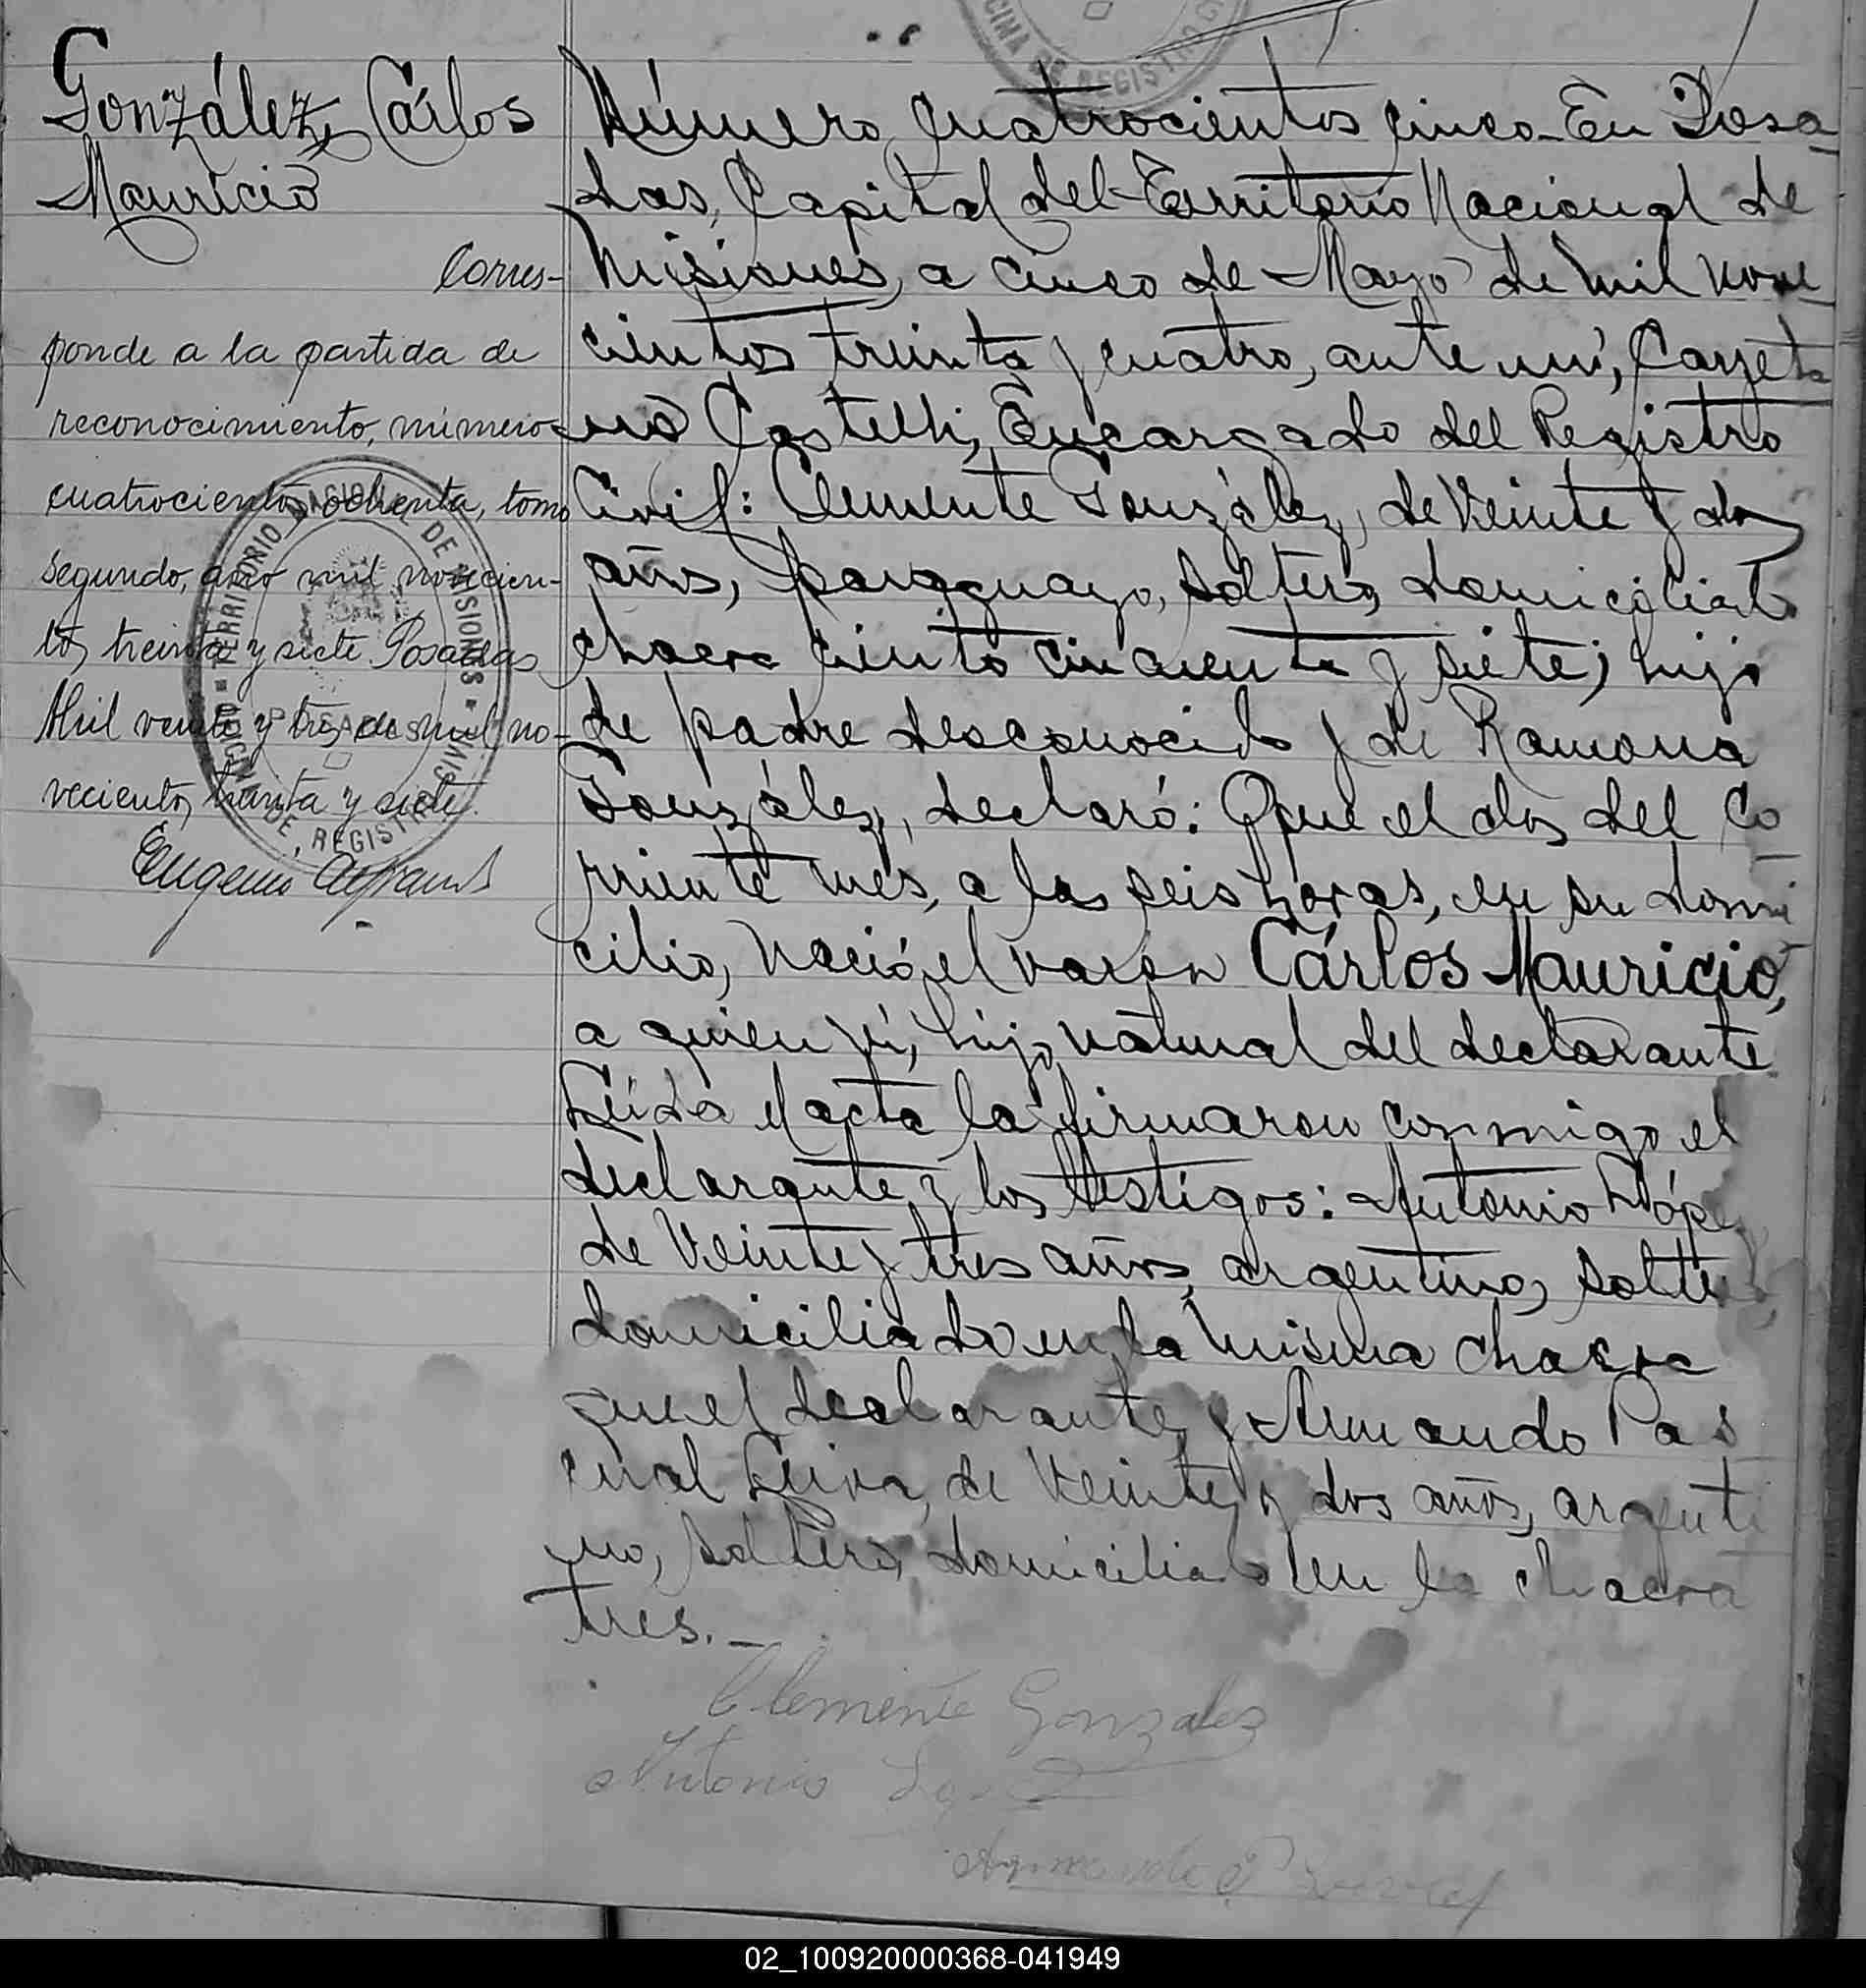 González, Cárlos
Mauricio
Corres-
ponde a la partida de
reconocimiento, número
cuatrocientos ochenta, tomo
segundo, año mil novecien-
tos treinta y siete Posadas
Abril veinte y tres de mil no-
vecientos treinta y siete.
Eugenio
TERRITORIO NACIONAL DE MISIONES
OFICINA DE REGISTRO CIVIL
CINA DE REGISTRO
Número quatrocientos cinco-En Posa-
das, Capital del Territorio Nacional de
Misiones, a cinco de Mayo de mil nove-
cientos treinta y cuatro, ante mí, Cayeta
no Castelli, Encargado del Registro
Civil: Clemente González, de veinte y dos
años, paraguayo, soltero, domiciliado
chacra ciento cincuenta y siete; hijo
de padre desconocido y de Ramona
González, declaró: Que el dos del co-
rriente mes, a las seis horas, en su domi-
cilio, nació el varon Cárlos Mauricio,
a quien ví, hijo natural del declarante
Leída el acta la firmaron conmigo el
declarante y los testigos: Antonio Lópe
de veinte y tres años, argentino, solte
domiciliado en la misma chacra
que el declarante, y Armando Pas
cual Leiva, de veinte y dos años, argenti
no, soltero, domiciliado en la chacra
tres.-
Clemente Gonzalez
Antonio
Armando P.
02_100920000368-041949